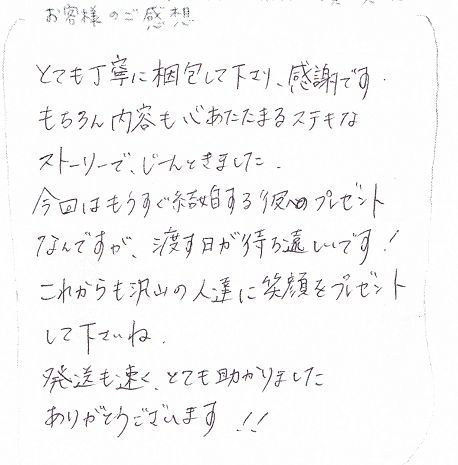 お客様のご感想
とても丁寧に梱包して下さり、感謝です.
もちろん内容も心あたたまるステキな
ストーリーで、じーんときました.
今回はもうすぐ結婚する彼へのプレゼント
なんですが、渡す日が待ち遠しいです!
これからも沢山の人達に笑顔をプレゼント
して下さいね.
発送も速く、とても助かりました
ありがとうございます!!